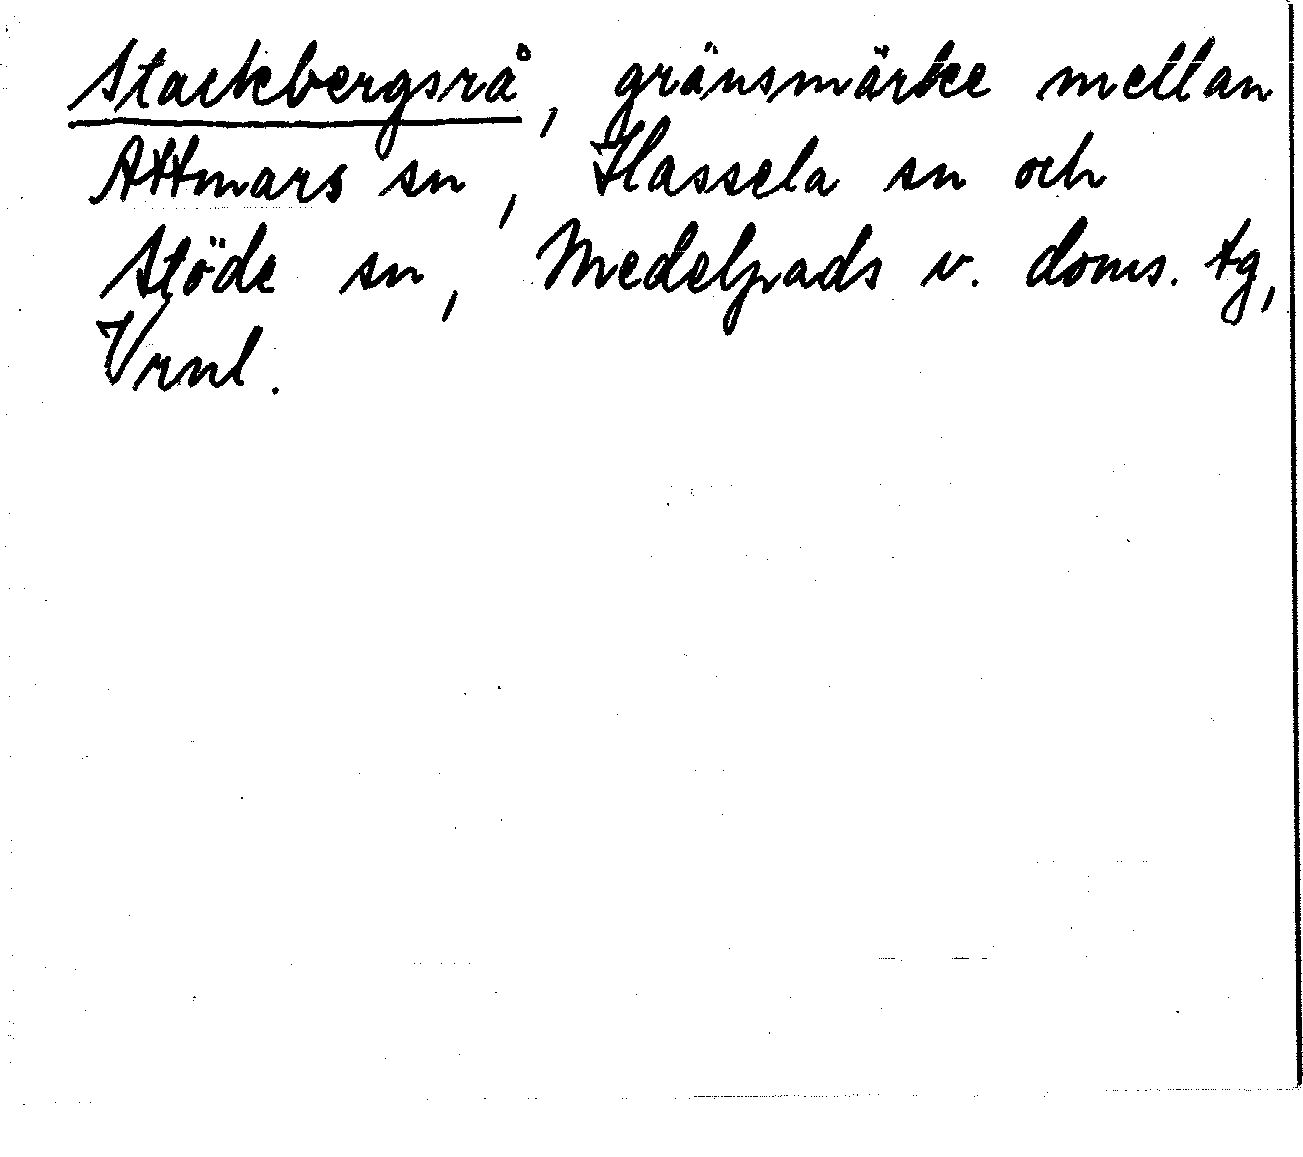 Stackbergsrå, gränsmärke mellan
Attmars sn, Hassela sn och
Stöde sn, Medelpads v. doms. tg,
Vrnl.